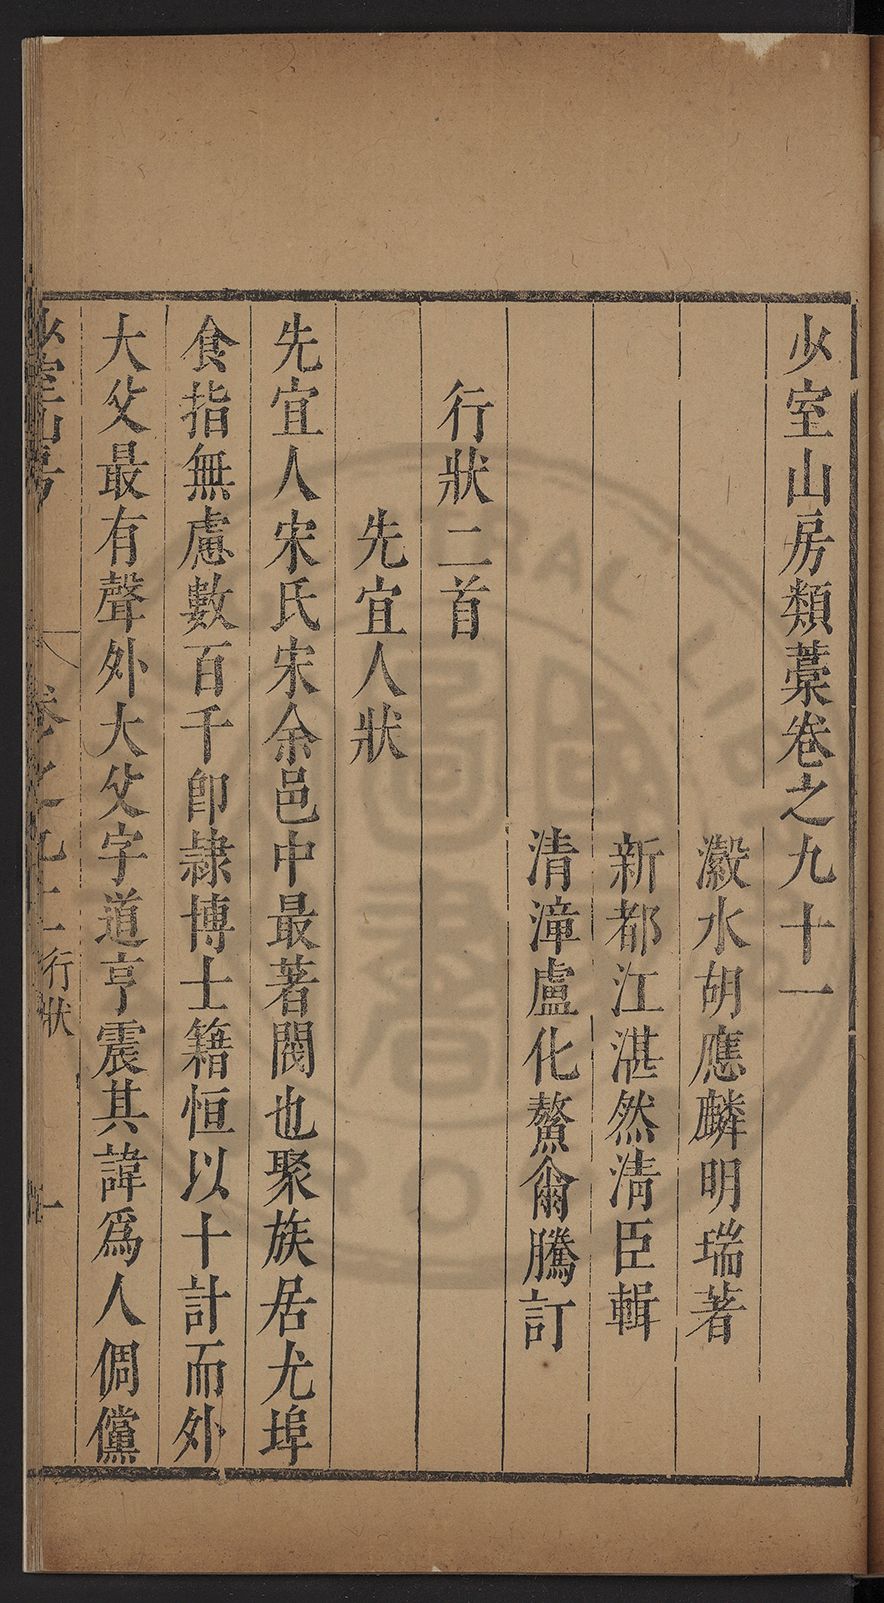 少室山房類藁卷之九十一
瀫水胡應麟明瑞著
新都江湛然清臣輯
清漳盧化鰲爾騰訂
行狀二首
先宜人狀
先宜人宋氏宋余邑中最著閥也聚族居尤埠
食指無慮數百千即隷博士籍恒以十計而外
大父最有聲外大父字道亨震其諱爲人倜儻
少室山房 卷之九十一 行狀 一